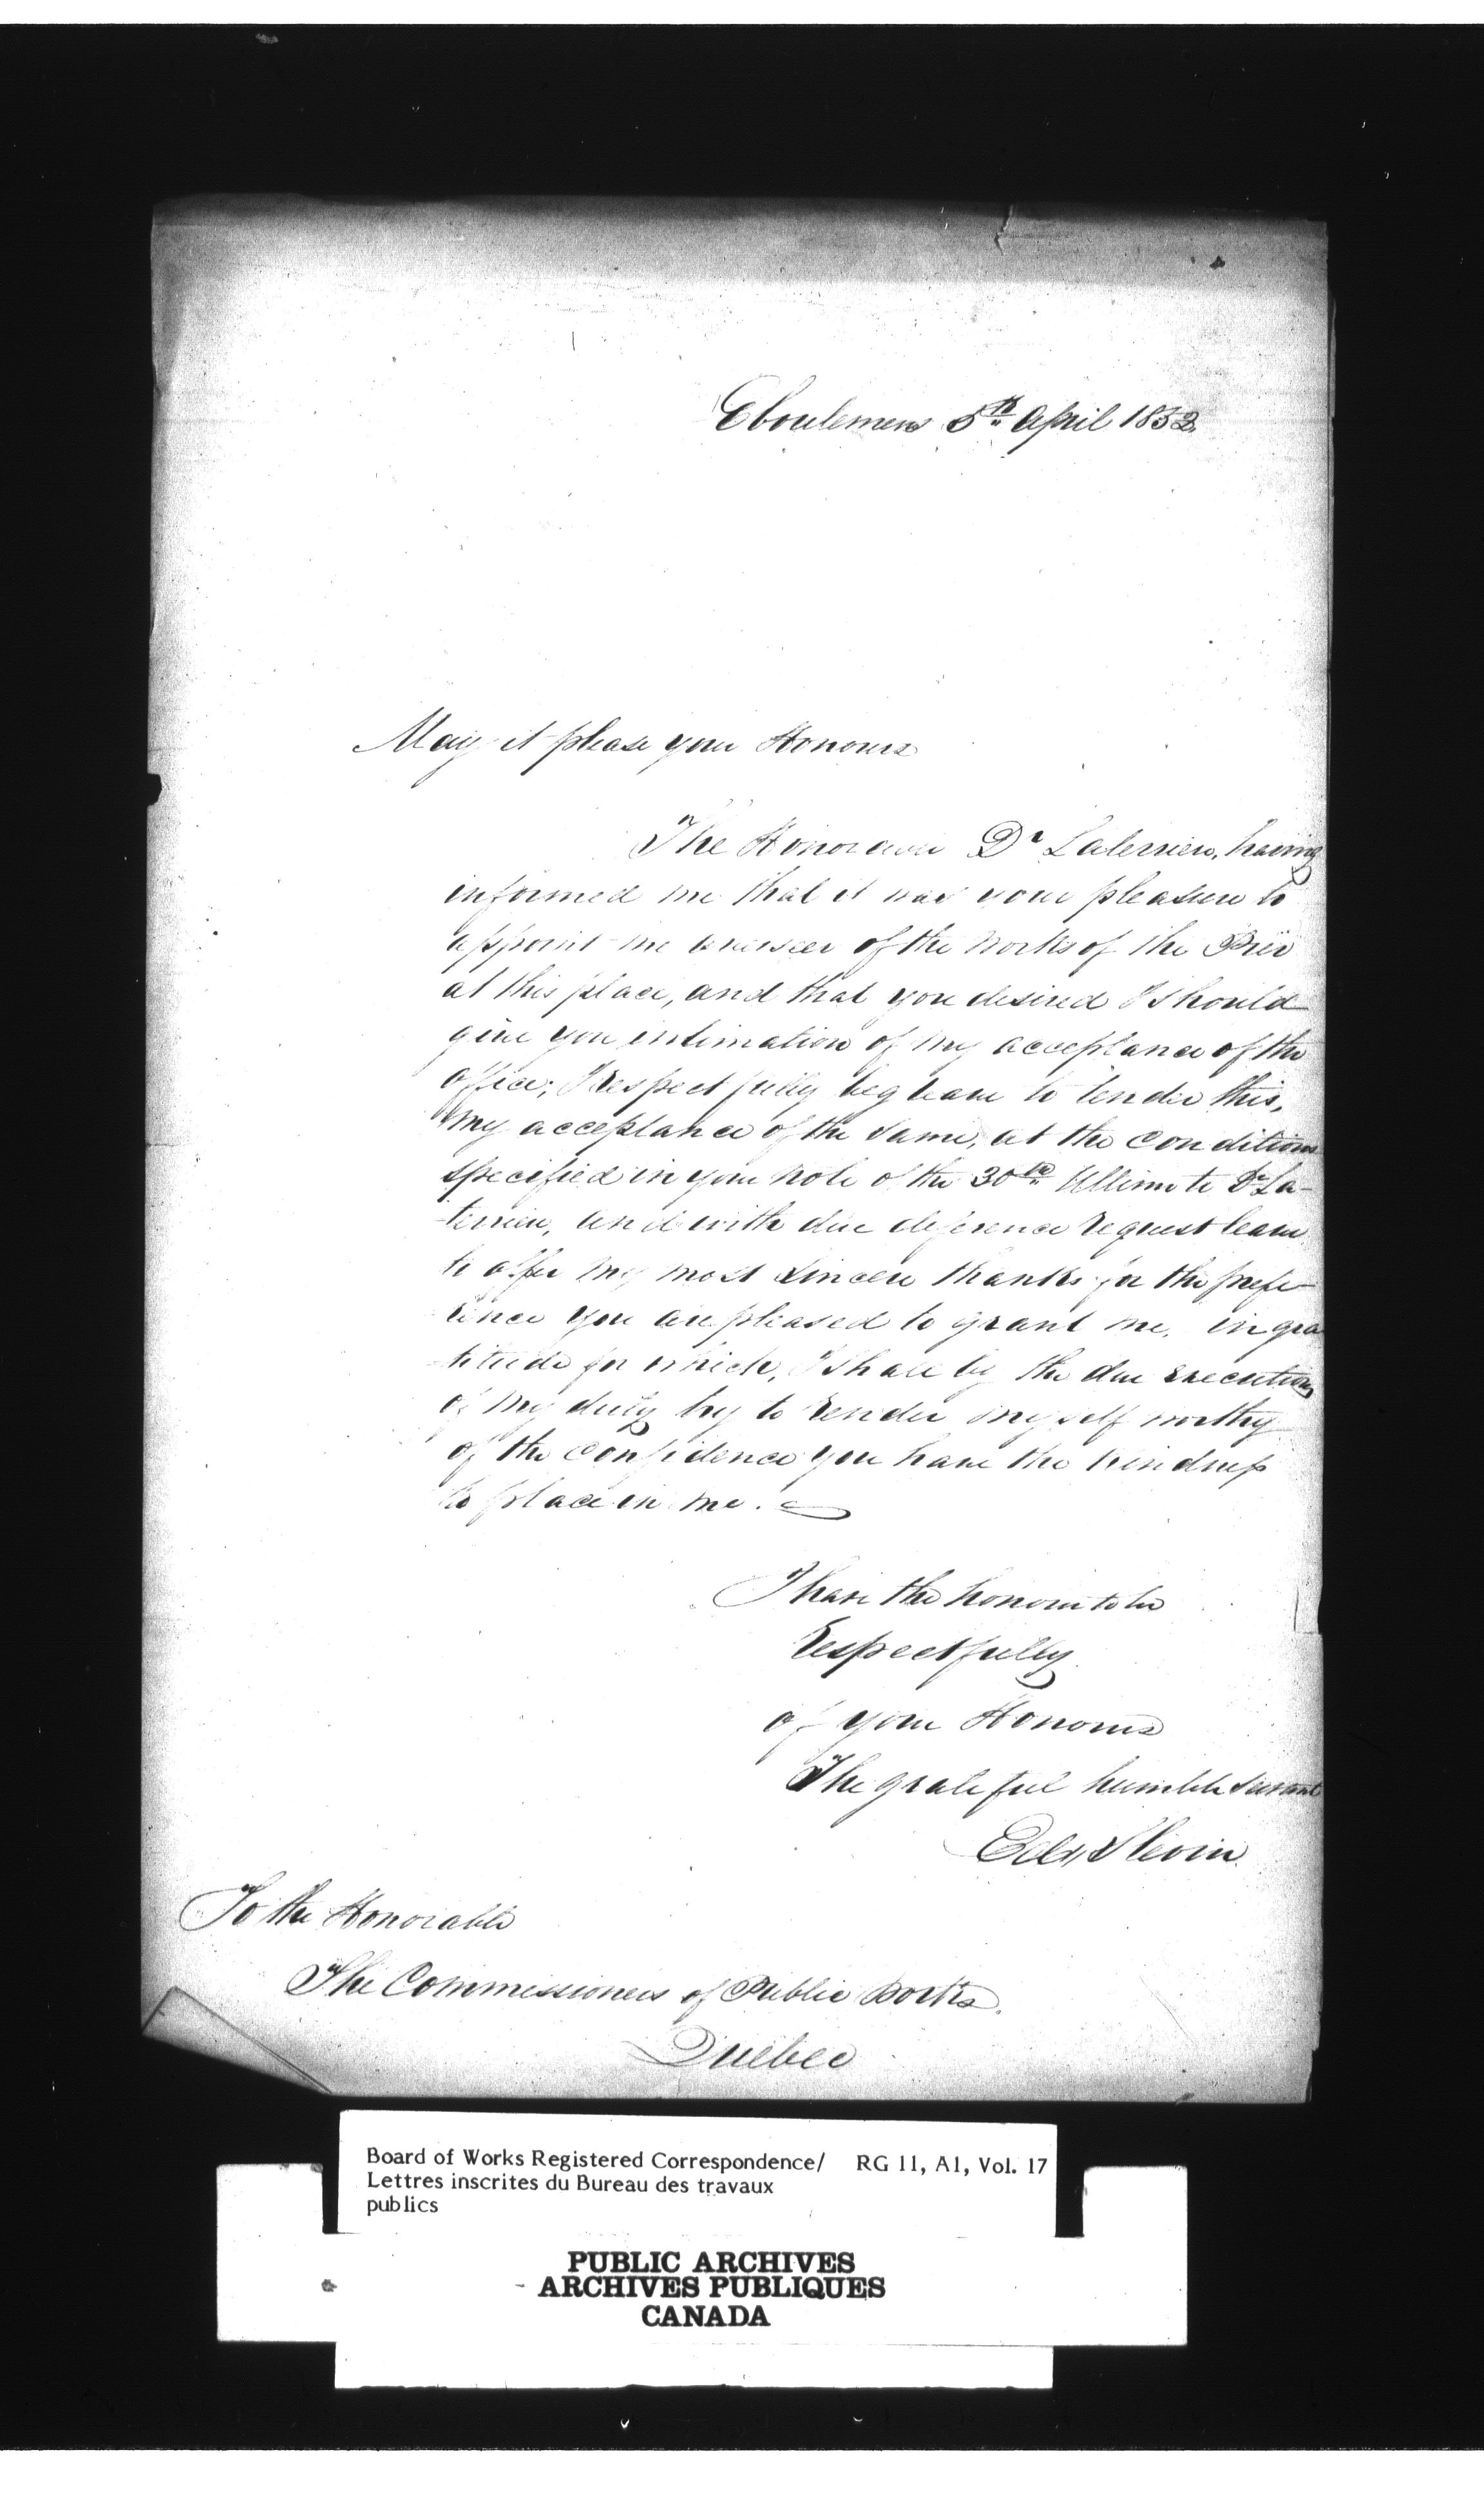 Eboulemens 5th April 1852.
May it please your Honours
The Honorable Dr Laterriere, having
informed me that it was your pleasure to
appoint me overseer of the works of the Pier
at this place, and that you desired I should
give you intimation of my acceptance of the
office; I respectfully beg leave to tender this,
my acceptance of the same, at the conditions
specified in your note of the 30th Ultimo to Dr La-
-terriere, and with due deference request leave
to offer my most sincere thanks for the prefe-
rence you are pleased to grant me, in gra
-titude for which, I shall by the due execution
of my duty try to render myself worthy
of the confidence you have the kindness
to place in me.
I have the honour to be
Respectfully
of your Honours
The grateful humble servant
Slevin
To the Honorable
The Commissioners of Public Works.
Quebec
Board of Works Registered Correspondence/ RG 11, A1, Vol. 17
Lettres inscrites du Bureau des travaux
publics
PUBLIC ARCHIVES
ARCHIVES PUBLIQUES
CANADA